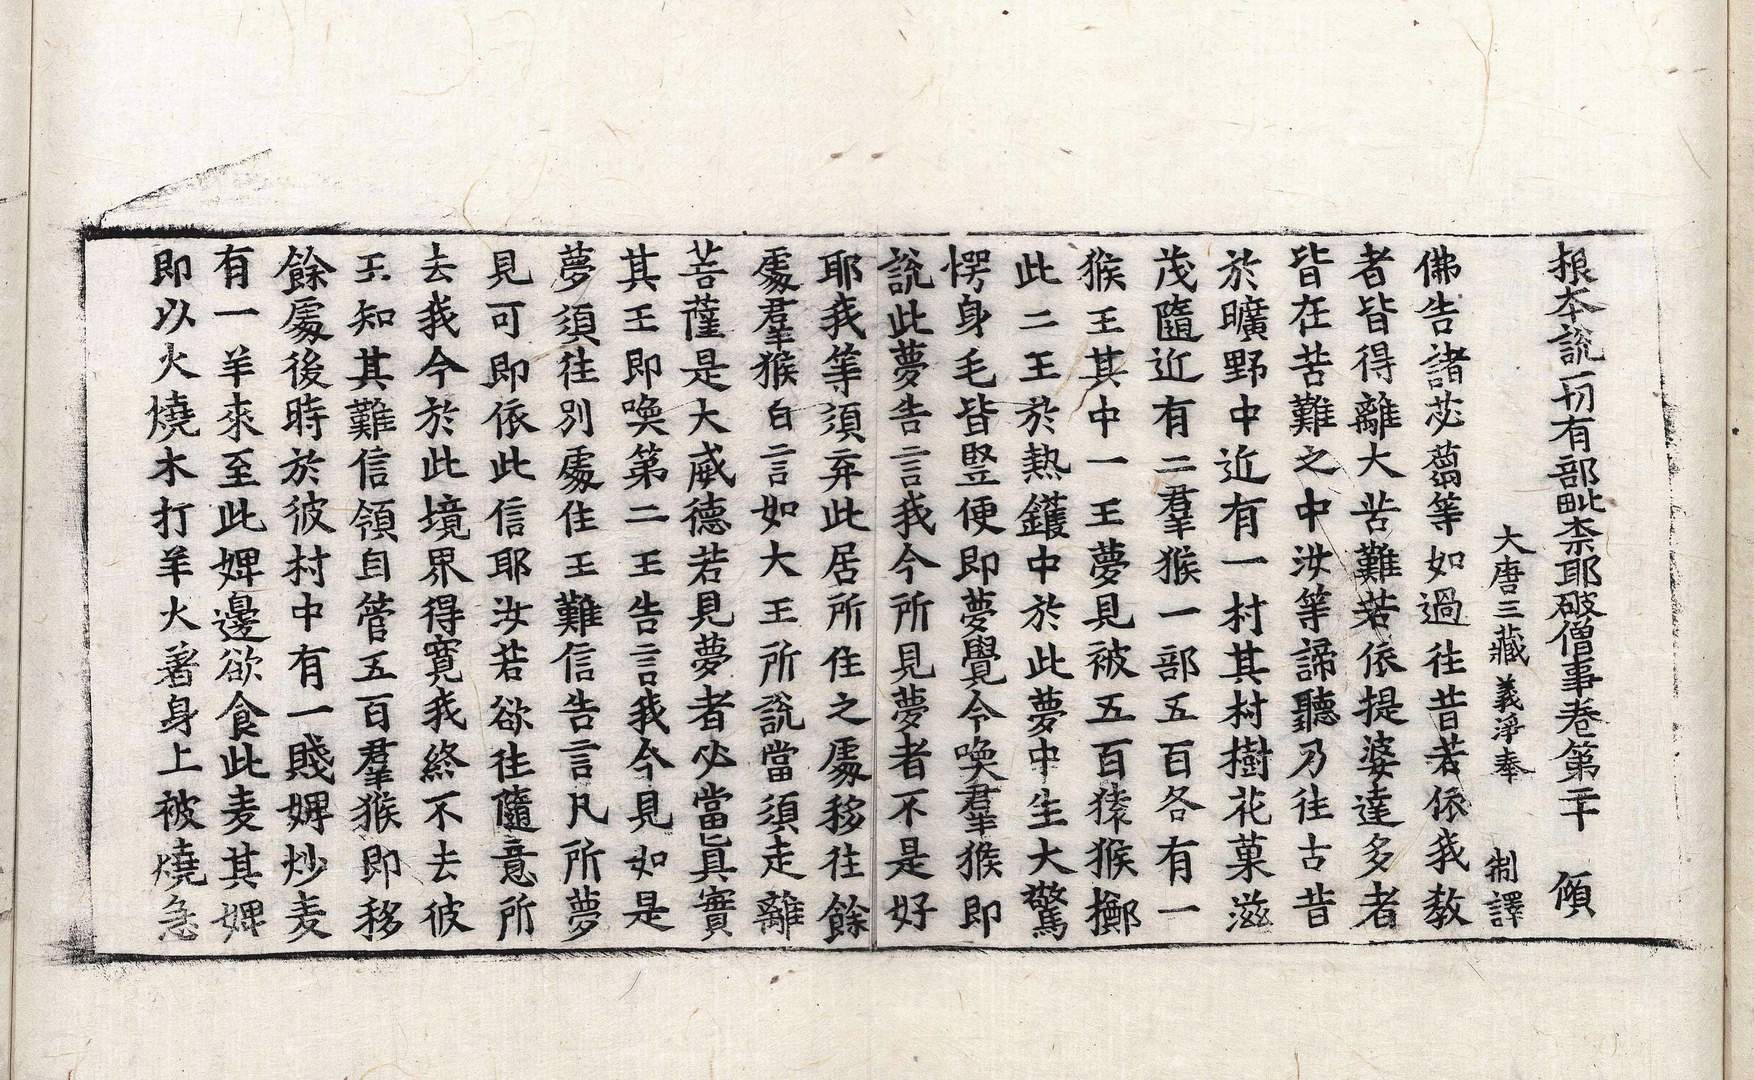 根本說一切有部毗柰耶破僧事卷第二十 傾
大唐三藏義淨奉 制譯
佛告諸苾蒭等如過往昔若依我教
者皆得離大苦難若依提婆達多者
皆在苦難之中汝等諦聽乃往古昔
於曠野中近有一村其村樹花菓滋
茂隨近有二羣猴一部五百各有一
猴王其中一王夢見被五百猿猴擲
此二王於熱鑊中於此夢中生大驚
愕身毛皆竪便即夢覺令喚羣猴即
說此夢告言我今所見夢者不是好
耶我等須弃此居所住之處移往餘
處羣猴白言如大王所說當須走離
菩薩是大威德若見夢者必當眞實
其王即喚第二王告言我今見如是
夢須往別處住王難信告言凡所夢
見可即依此信耶汝若欲往隨意所
去我今於此境界得寬我終不去彼
王知其難信領自管五百羣猴即移
餘處後時於彼村中有一賤婢炒麦
有一羊來至此婢邊欲食此麦其婢
即以火燒木打羊火著身上被燒急